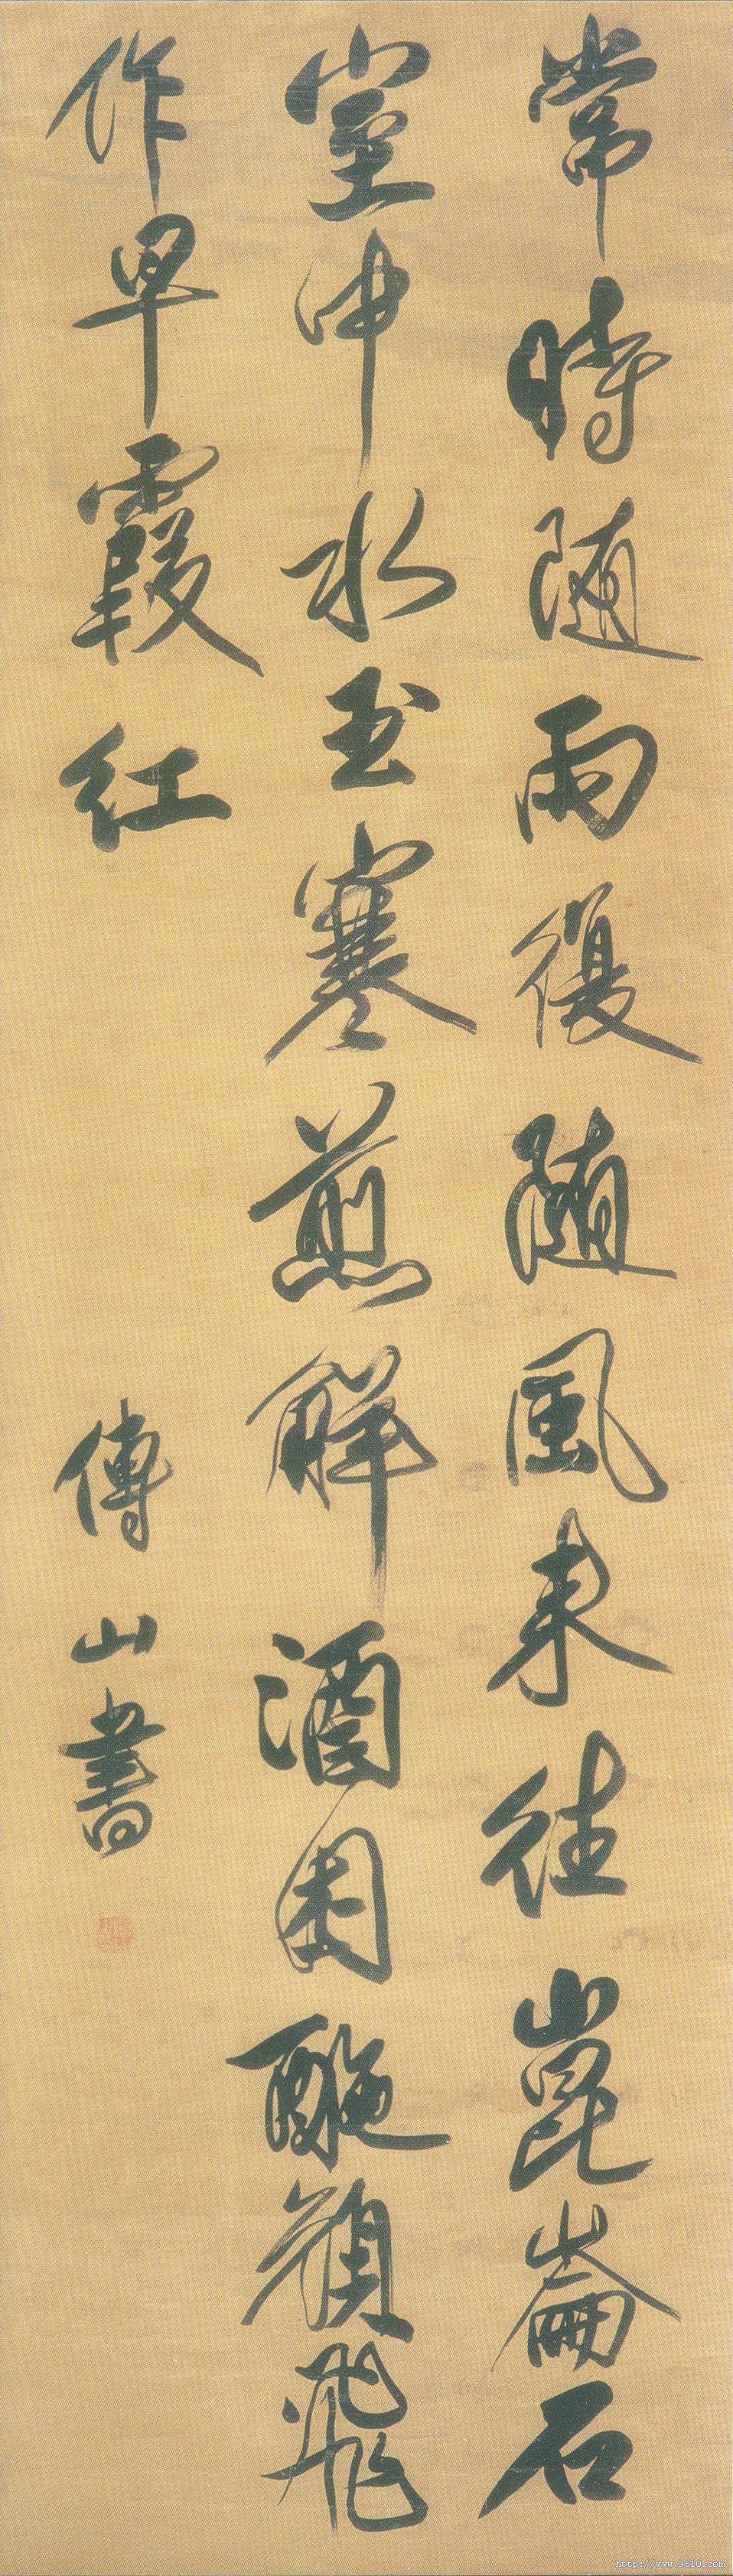 常時随雨復随風来往崑崙石
室中水玉寒煎解酒困酡顔飛
作早霞紅
傅山書
http://www.9610.com